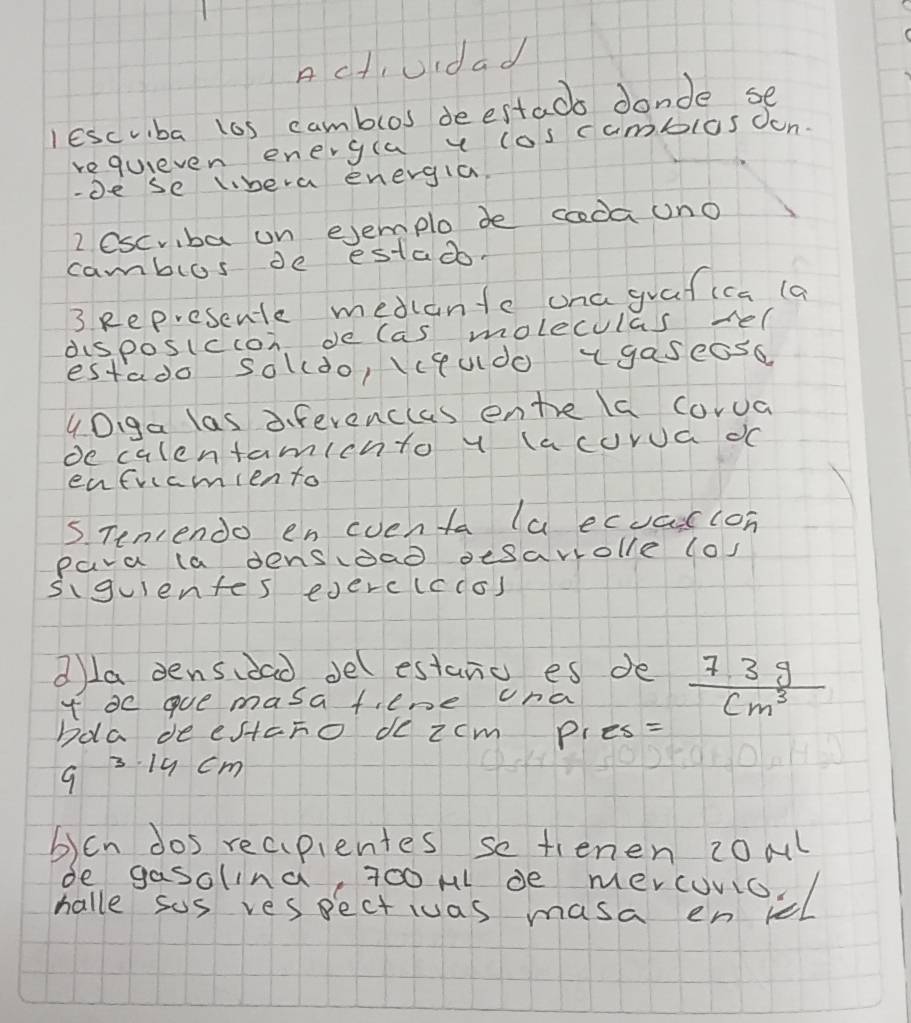 Actividad
1 Escriba los cambios de estado donde se
requieren energia y los cambios don-
-de se libera energia.
2 escriba un ejemplo de cada uno
cambios de estado.
3 Represente mediante una grafica la
disposiccion de las moleculas del
estado solido, liquido y gaseoso
4 Diga las diferencias entre la corva
de calentamiento y la curva de
enfriamiento
5. Teniendo en cuenta la ecuacion
para la densidad desarrolle los
siguientes ejercicios
a) la densidad del estaño es de 7.3 g / cm³
y de que masa tiene una
bola de estaño de 2cm pies =
a 3.14 cm
b) en dos recipientes se tienen 20 ml
de gasolina, 700 ml de mercurio.
halle sus respectivas masa en